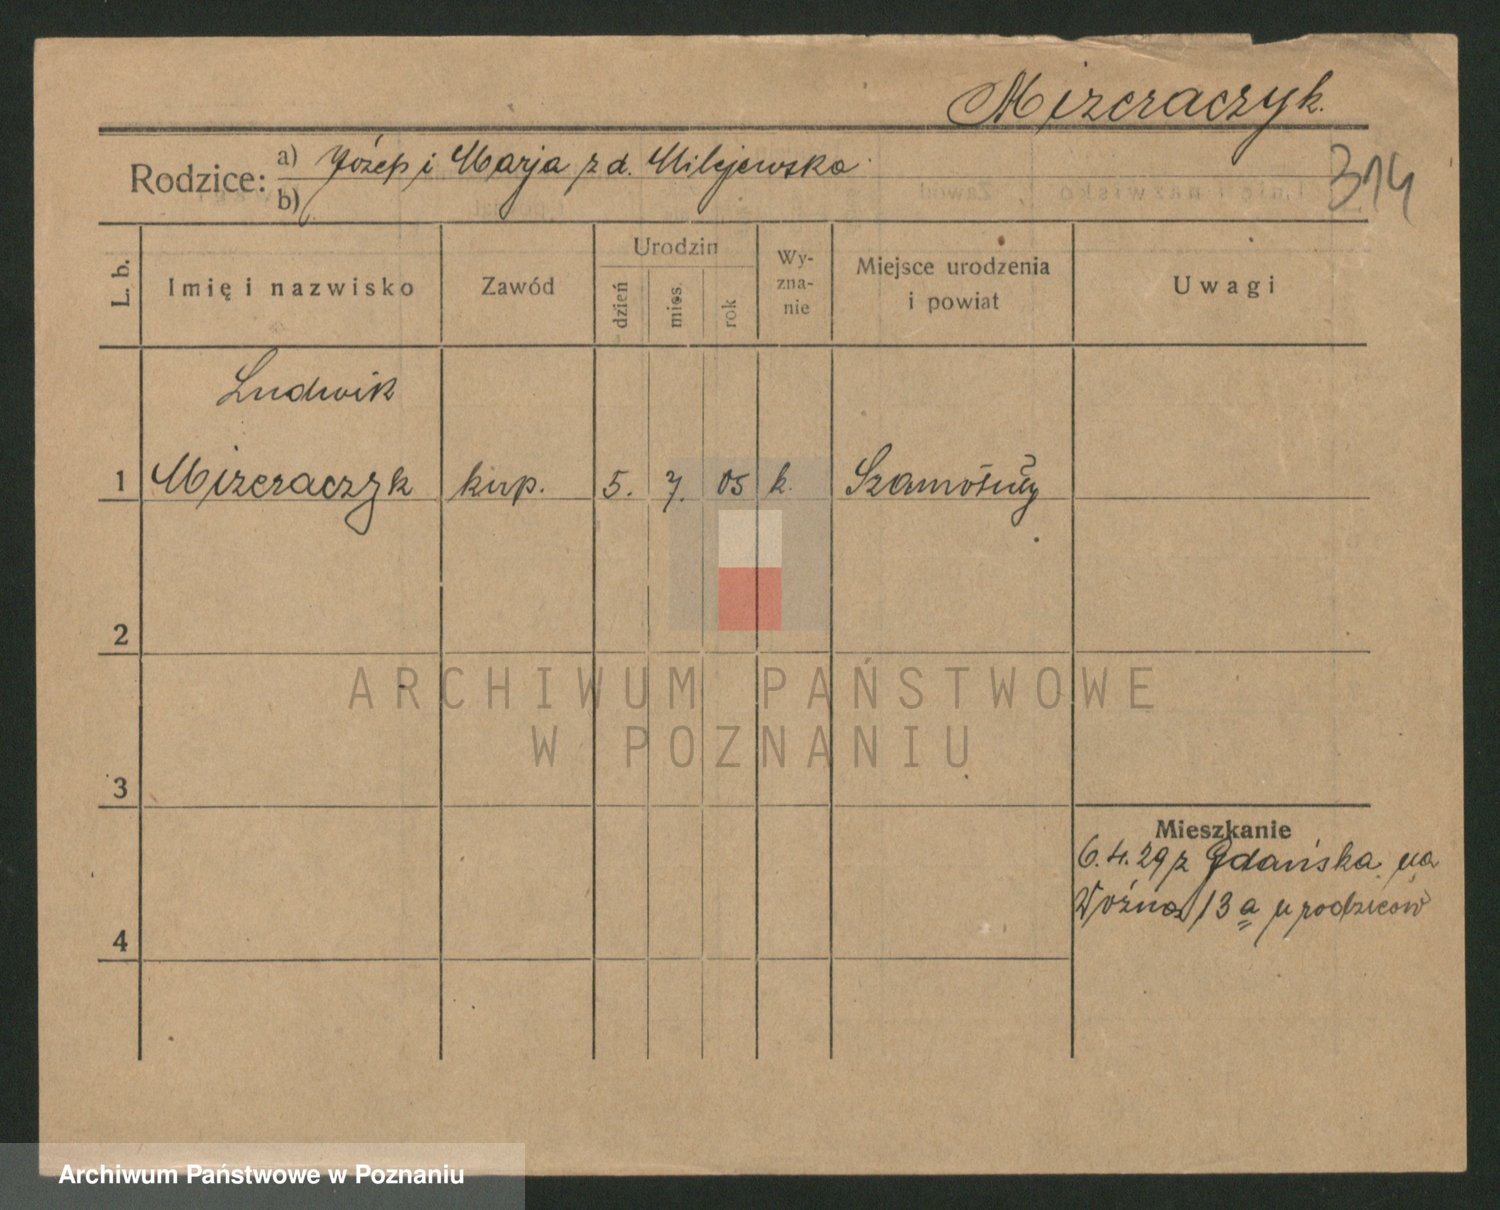 Mizeraczyk.
314
Rodzice: a) Józef i Marja z d. Milejewska
b)
L. b.
Imię i nazwisko
Zawód
Urodzin
dzień
mies.
rok
Wy-
zna-
nie
Miejsce urodzenia
i powiat
Uwagi
Ludwik
1 Mizeraczyk kup. 5. 7. 05 k. Szamotuły
2
3
4
Mieszkanie
6.4.29 z Gdańska na
Woźna 13a u rodziców
ARCHIWUM PAŃSTWOWE
W POZNANIU
Archiwum Państwowe w Poznaniu